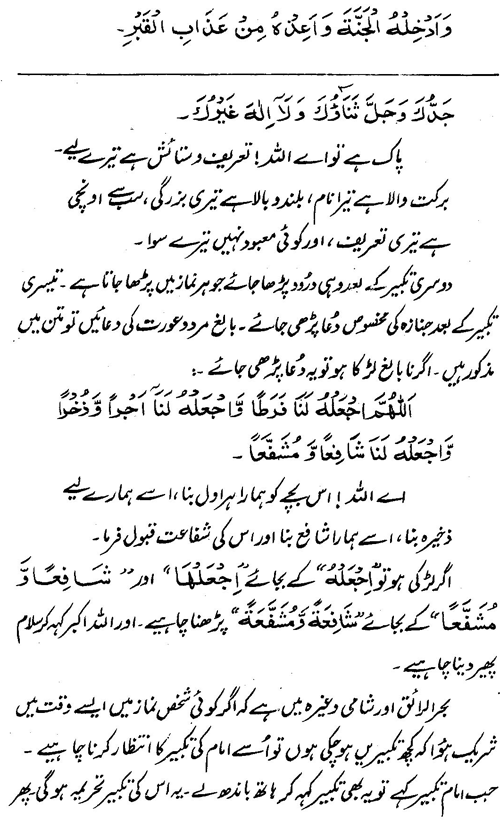 وَاَدْخِلْهُ الْجَنَّةَ وَاَعِذْهُ مِنْ عَذَابِ الْقَبْرِ۔
جَدُّكَ وَجَلَّ ثَنَاؤُكَ وَلَآ اِلٰهَ غَيْرُكَ۔
پاک ہے تو اے اللہ! تعریف و ستائش ہے تیرے لیے۔
برکت والا ہے تیرا نام، بلند و بالا ہے تیری بزرگی، سب سے اونچی
ہے تیری تعریف، اور کوئی معبود نہیں تیرے سوا۔
دوسری تکبیر کے بعد وہی درود پڑھا جائے جو ہر نماز میں پڑھا جاتا ہے۔ تیسری
تکبیر کے بعد جنازہ کی مخصوص دُعا پڑھی جائے۔ بالغ مرد و عورت کی دعائیں تو متن میں
مذکور ہیں۔ اگر نابالغ لڑکا ہو تو یہ دُعا پڑھی جائے :۔
اَللّٰهُمَّ اجْعَلْهُ لَنَا فَرَطًا وَّاجْعَلْهُ لَنَا اَجْرًا وَّذُخْرًا
وَّاجْعَلْهُ لَنَا شَافِعًا وَّ مُشَفَّعًا۔
اے اللہ! اس بچے کو ہمارا ہراول بنا، اسے ہمارے لیے
ذخیرہ بنا، اسے ہمارا شافع بنا اور اس کی شفاعت قبول فرما۔
اگر لڑکی ہو تو "اِجْعَلْهُ" کے بجائے "اِجْعَلْهَا" اور "شَافِعًا وَّ
مُشَفَّعًا" کے بجائے "شَافِعَةً وَّمُشَفَّعَةً" پڑھنا چاہیے۔ اور اللہ اکبر کہہ کر سلام
پھیر دینا چاہیے۔
بحر الرائق اور شامی وغیرہ میں ہے کہ اگر کوئی شخص نماز میں ایسے وقت میں
شریک ہؤا کہ کچھ تکبیریں ہو چکی ہوں تو اُسے امام کی تکبیر کا انتظار کرنا چاہیے۔
جب امام تکبیر کہے تو یہ بھی تکبیر کہہ کر ہاتھ باندھ لے۔ یہ اس کی تکبیر تحریمہ ہوگی۔ پھر